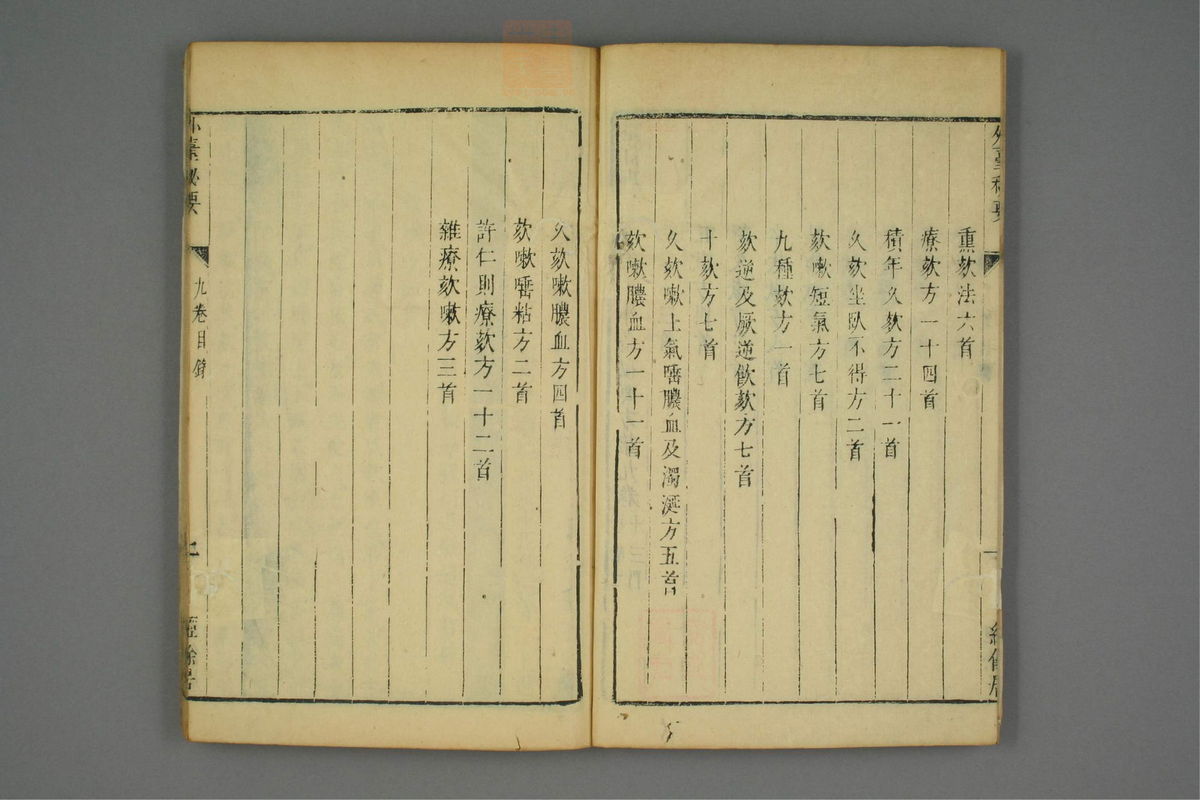 外臺秘要
熏欬法六首
療欬方一十四首
積年久欬方二十一首
久欬坐臥不得方二首
欬嗽短氣方七首
九種欬方一首
欬逆及厥逆飲欬方七首
十欬方七首
久欬嗽上氣唾膿血及濁涎方五首
欬嗽膿血方一十一首
經餘居
久欬嗽膿血方四首
欬嗽唾粘方二首
許仁則療欬方一十二首
雜療欬嗽方三首
外臺秘要
九卷目錄
經餘居